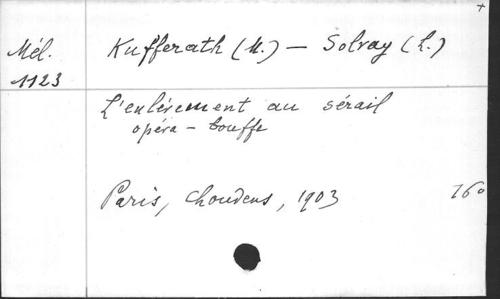 +
Mél.
1123
Kufferath (M.) – Solvay (L.)
L'enlèvement au sérail
opéra – bouffe
Paris, Choudens, 1903
16º